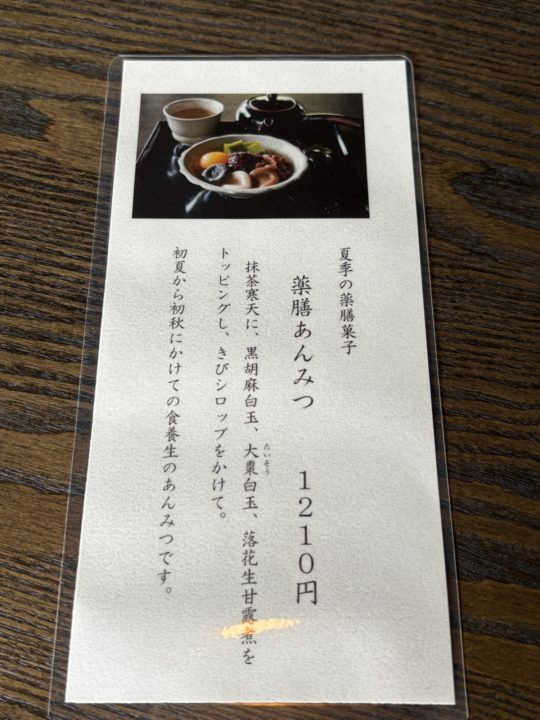 夏季の薬膳菓子
薬膳あんみつ　１２１０円
抹茶寒天に、黒胡麻白玉、大棗白玉、落花生甘露煮を
たいそう
トッピングし、きびシロップをかけて。
初夏から初秋にかけての食養生のあんみつです。